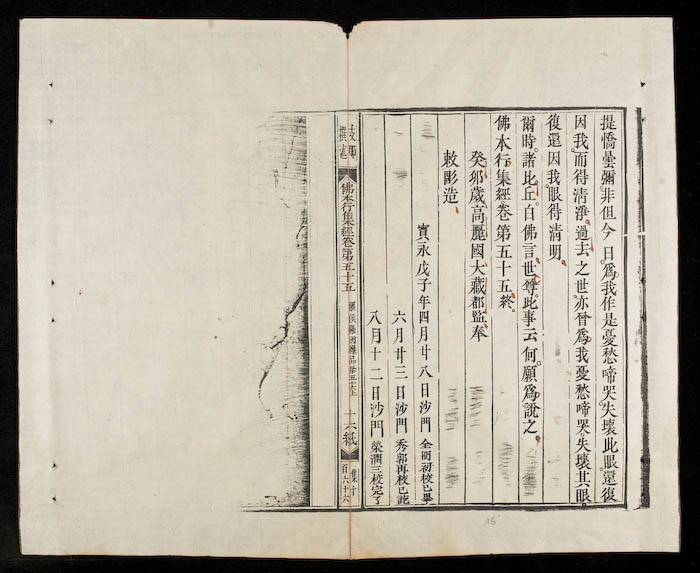 提憍曇彌。非但今日爲我作是憂愁啼哭。失壞此眼。還復
因我。而得清淨。過去之世。亦曾爲我憂愁啼哭。失壞其眼。
復還因我。眼得清明。
爾時。諸比丘。白佛言。世尊。此事云何。願爲說之。
佛本行集經卷第五十五終
癸卯歲高麗國大藏都監奉
敕彫造
寶永戊子年四月廿八日沙門 全 初校已畢
六月廿三日沙門 秀郭再校已訖
八月十二日沙門 榮潤三校完了
佛本行集經卷第五十五 羅侯羅因緣品 十六紙 集十 百六十六
16